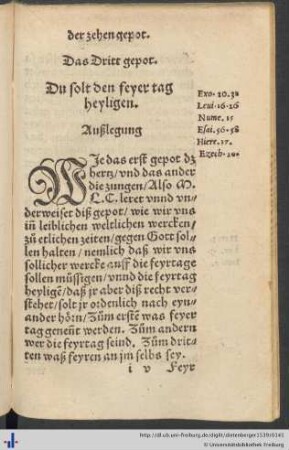 der zehen gepot.
Das Dritt gepot.
Du solt den feyer tag
heyligen.
Exo. 20.31
Leui. 16.26
Nume. 15
Esai. 56.58
Hiere. 17.
Ezech. 20.
Außlegung
WJe das erst gepot dz
hertz/vnd das ander
die zungen/Also M.
L.C. leret vnnd vn⸗
derweiset diß gepot/wie wir vns
in̄ leiblichen weltlichen wercken⸗
zů etlichen zeiten/gegen Gott sol⸗
len halten/nemlich daß wir vns
sollicher wercke auff die feyrtage
sollen müssigen/vnnd die feyrtag
heyligē/daß jr aber diß recht ver⸗
stehet/solt jr ordenlich nach eyn⸗
ander hörn/Zům erstē was feyer
tag geneñt werden. Zům andern
wer die feyrtag seind. Zům drit⸗
ten waß feyren an jm selbs sey.
i v Feyr
http://dl.ub.uni-freiburg.de/diglit/dietenberger1539/0145
© Universitätsbibliothek Freiburg